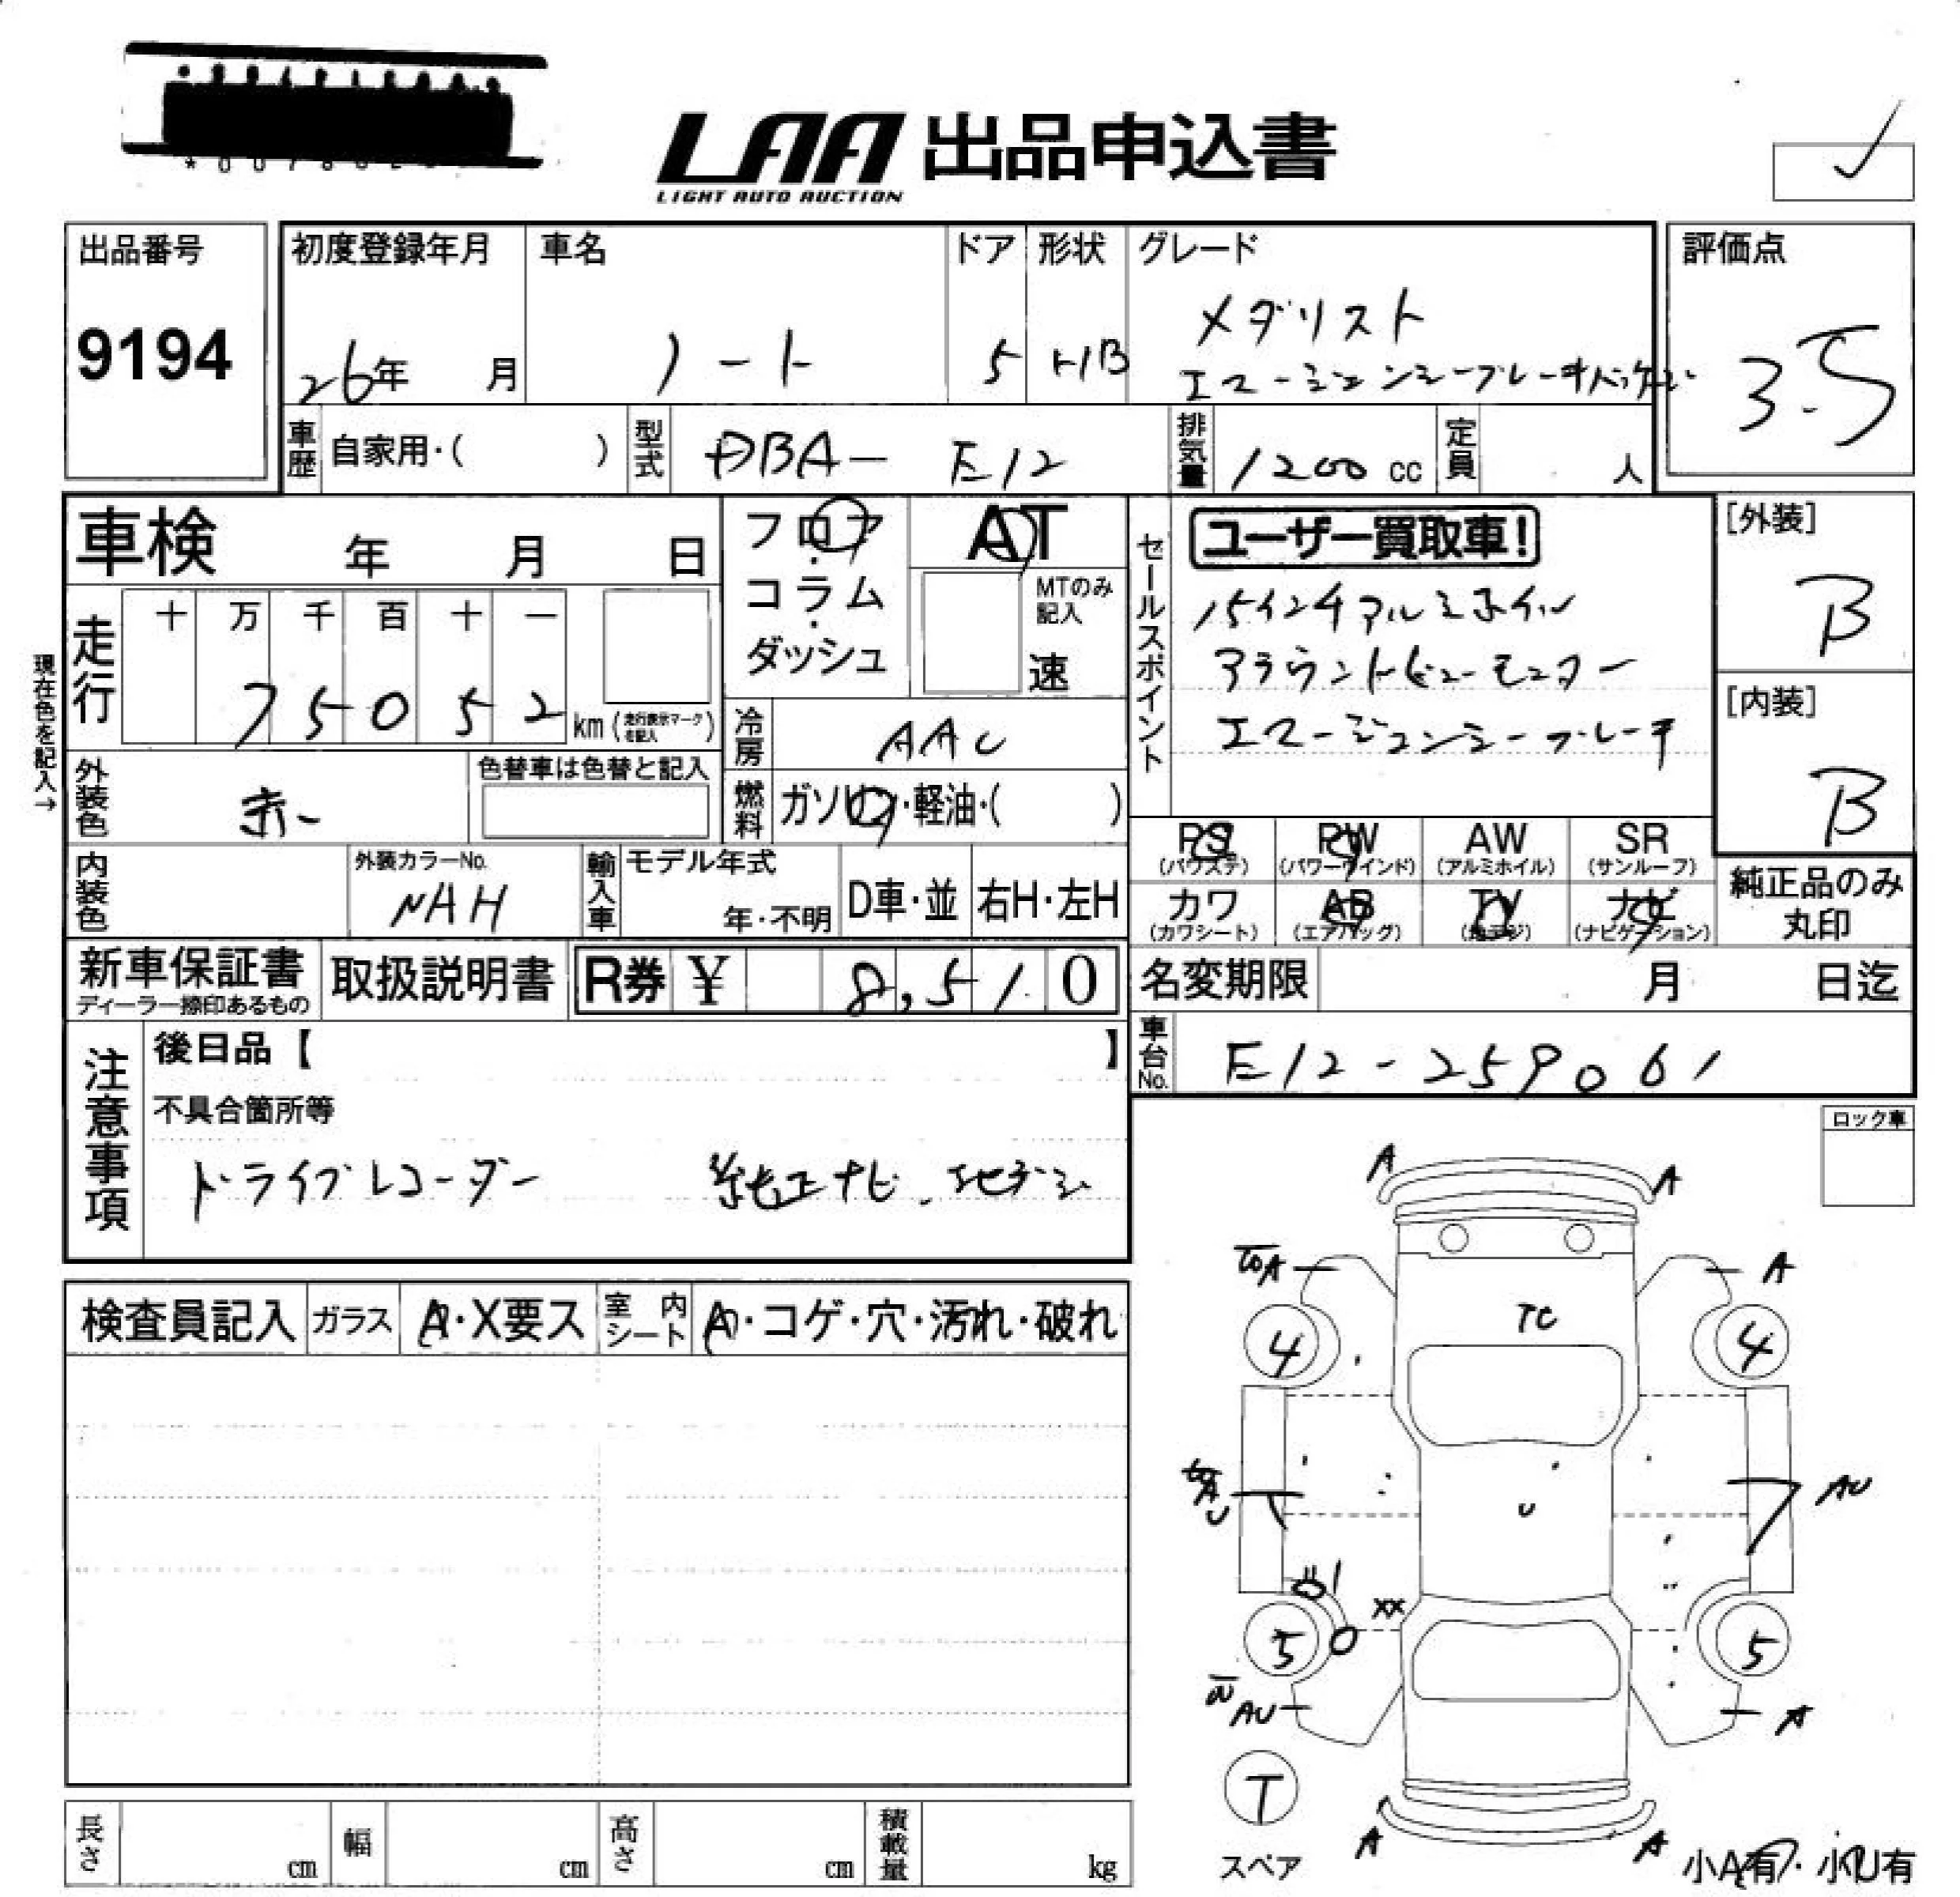 LAA 出品申込書
LIGHT AUTO AUCTION
出品番号
9194
初度登録年月
26年 月
車名
ノート
ドア
5
形状
H/B
グレード
メダリスト
エマージェンシーブレーキパッケージ
評価点
3.5
車歴 自家用・( )
型式 DBA- E12
排気量 1200 cc
定員 人
車検 年 月 日
フロア・コラム・ダッシュ
AT
MTのみ記入
速
セールスポイント
ユーザー買取車!
15インチアルミホイル
アラウンドビューモニター
エマージェンシーブレーキ
[外装]
B
[内装]
B
現在色を記入→
走行 十 万 千 百 十 一
75052 km (走行表示マークを記入)
冷房 AAC
外装色 赤
色替車は色替と記入
燃料 ガソリン・軽油・( )
PS (パワステ) PW (パワーウインド) AW (アルミホイル) SR (サンルーフ)
カワ (カワシート) AB (エアバッグ) TV (地デジ) ナビ (ナビゲーション)
純正品のみ丸印
内装色
外装カラーNo.
NAH
輸入車
モデル年式
年・不明
D車・並
右H・左H
新車保証書
ディーラー捺印あるもの
取扱説明書
R券 ¥ 8,510
名変期限 月 日迄
車台No. E12-259061
注意事項
後日品【 】
不具合箇所等
ドライブレコーダー 純正ナビ、地デジ
ロック車
検査員記入 ガラス A・X要ス 室内シート A・コゲ・穴・汚れ・破れ
A A
A A
TC
4 4
AU
U
XX
5 5
AU A
T
スペア
A A
小A有・小U有
長さ cm 幅 cm 高さ cm 積載量 kg